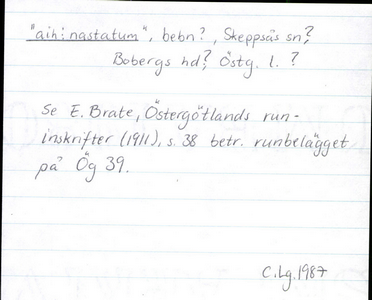 "aih:nastatum", bebn?, Skeppsås sn?
Bobergs hd? Östg. l. ?
Se E. Brate, Östergötlands run-
inskrifter (1911), s. 38 betr. runbelägget
på Ög 39.
C.Lg. 1987